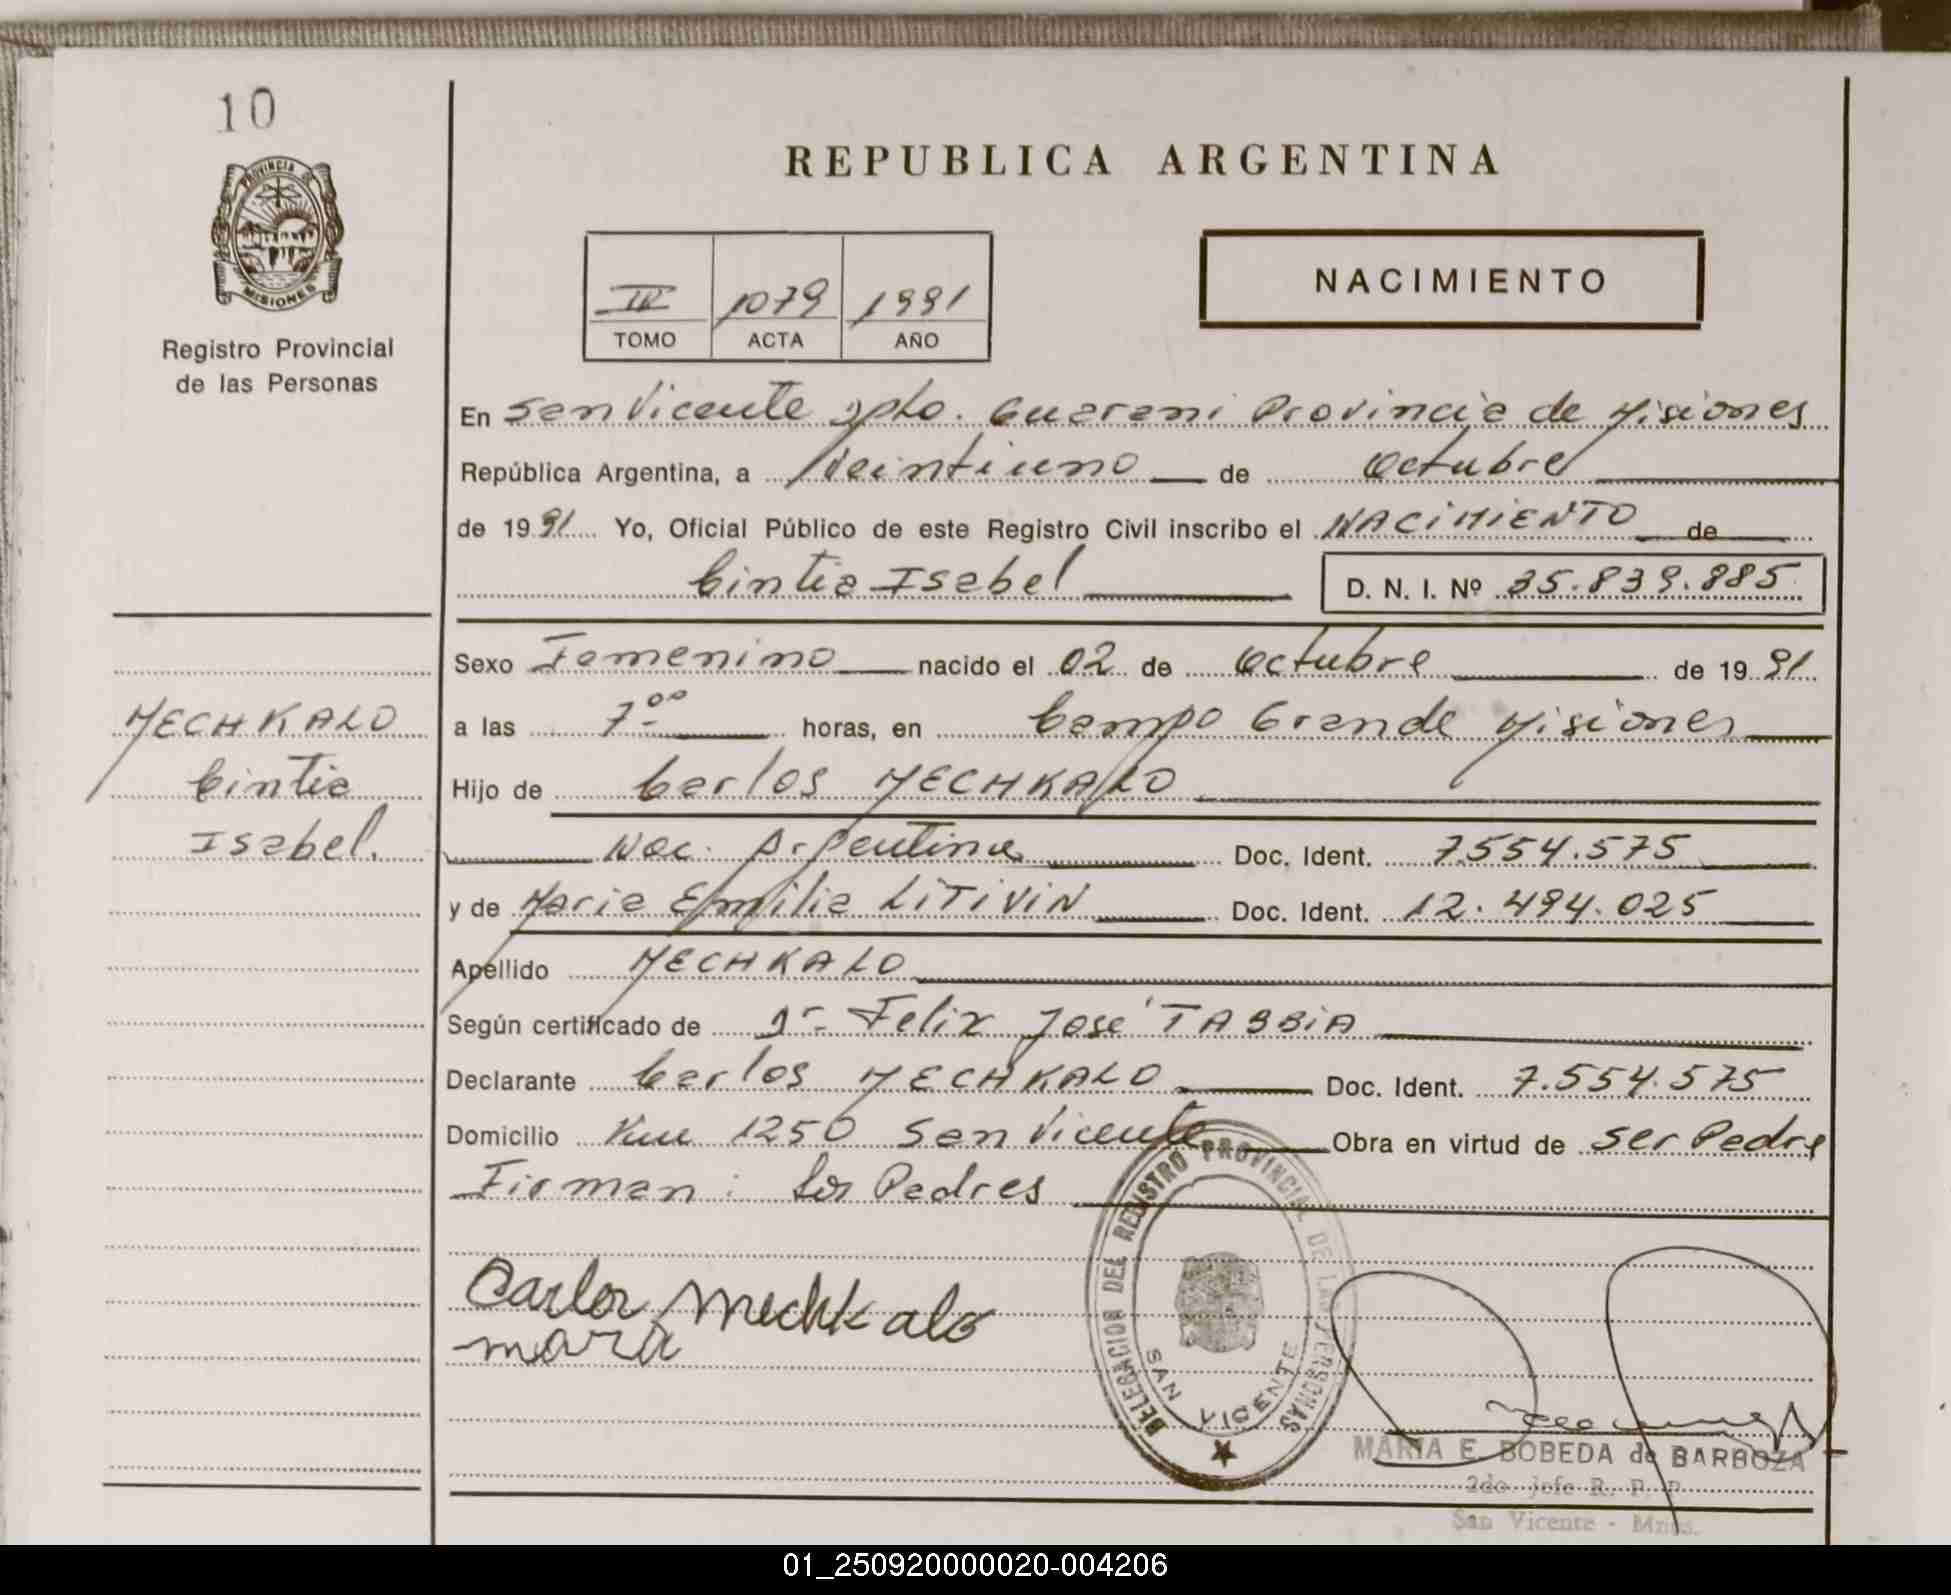 10
PROVINCIA DE
MISIONES
Registro Provincial
de las Personas
REPUBLICA ARGENTINA
NACIMIENTO
1079 1991
TOMO ACTA AÑO
En San Vicente Dpto. Guarani Provincia de Misiones
República Argentina, a Veintiuno de Octubre
de 1991 Yo, Oficial Público de este Registro Civil inscribo el NACIMIENTO de
Cintia Isabel D. N. I. Nº 35.839.885
Sexo Femenino nacido el 02 de Octubre de 1991
MECHKALO
Cintia
Isabel.
a las 7.00 horas, en Campo Grande Misiones
Hijo de Carlos MECHKALO
Nac. Argentina Doc. Ident. 7554.575
y de Maria Emilia LITIVIN Doc. Ident. 12.494.025
Apellido MECHKALO
Según certificado de Dr. Felix José TABBIA
Declarante Carlos MECHKALO Doc. Ident. 7.554.575
Domicilio Km 1250 San Vicente Obra en virtud de ser Padre
Firman: los Padres
Carlos Mechkalo
maria
DELEGACION DEL REGISTRO PROVINCIAL DE LAS PERSONAS
SAN VICENTE
MARIA E. BOBEDA de BARBOZA
2do. jefe R. P. P.
San Vicente - Mnes.
01_250920000020-004206